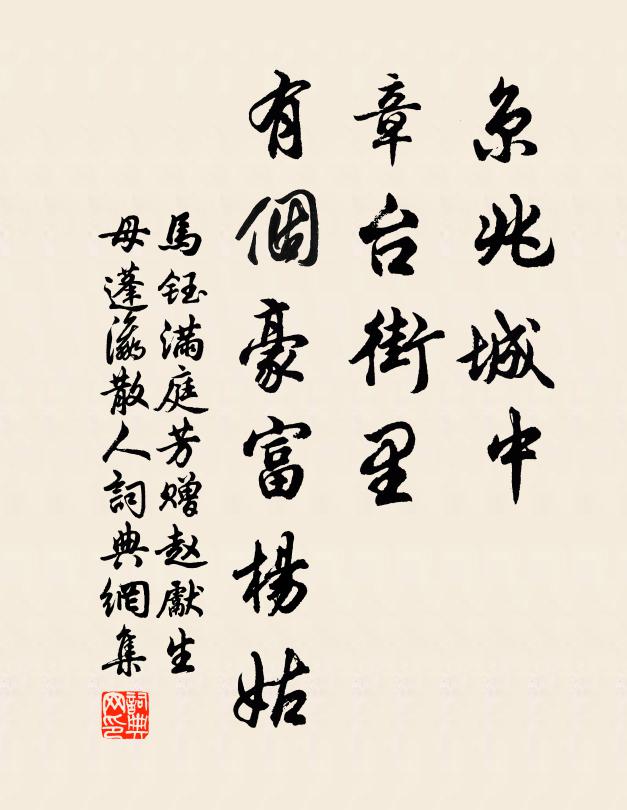 京兆城中
章台街里
有個豪富楊姑
馬鈺滿庭芳赠赵獻生
母蓬瀛散人詞典網集
詞典网印